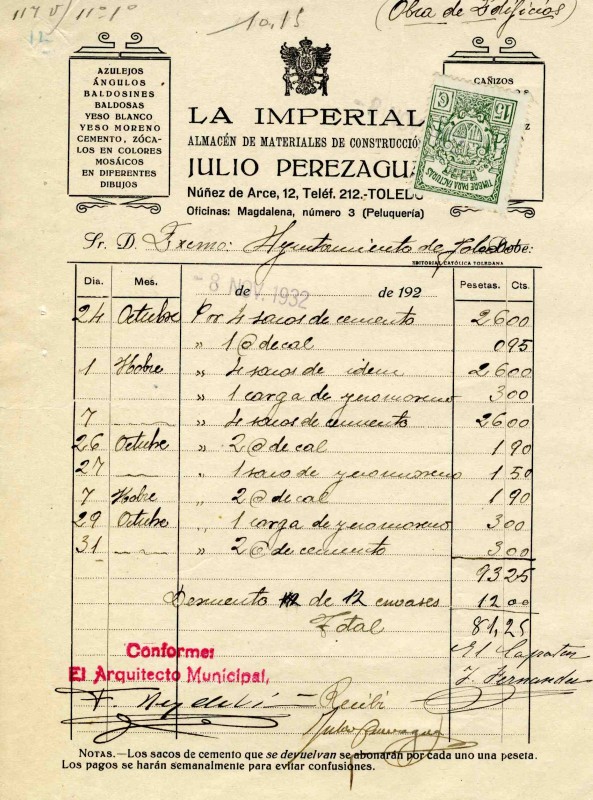 (Obra de Edificios)
10,15
AZULEJOS
ÁNGULOS
BALDOSINES
BALDOSAS
YESO BLANCO
YESO MORENO
CEMENTO, ZÓCA-
LOS EN COLORES
MOSÁICOS
EN DIFERENTES
DIBUJOS
CAÑIZOS
15 C
TIMBRE PARA FACTURAS
LA IMPERIAL
ALMACÉN DE MATERIALES DE CONSTRUCCIÓN
JULIO PEREZAGUA
Núñez de Arce, 12, Teléf. 212.-TOLEDO
Oficinas: Magdalena, número 3 (Peluquería)
Sr. D. Exmo: Ayuntamiento de Toledo Debe:
EDITORIAL CATÓLICA TOLEDANA
Día. Mes. de de 192 Pesetas. Cts.
- 8 NOV. 1932
24 Octubre Por 4 sacos de cemento 26 00
„ 1 @ de cal 0 95
1 Nobre „ 4 sacos de idem 26 00
„ 1 carga de yeso moreno 3 00
7 „ 4 sacos de cemento 26 00
26 Octubre „ 2 @ de cal 1 90
27 „ 1 saco de yeso moreno 1 50
7 Nobre „ 2 @ de cal 1 90
29 Octubre „ 1 carga de yeso moreno 3 00
31 „ 2 @ de cemento 3 00
93 25
Descuento de 12 envases 12 00
Total 81,25
El Capataz
J. Fernandez
Conforme:
El Arquitecto Municipal,
Recibí
Julio Perezagua
NOTAS.—Los sacos de cemento que se devuelvan se abonarán por cada uno una peseta.
Los pagos se harán semanalmente para evitar confusiones.